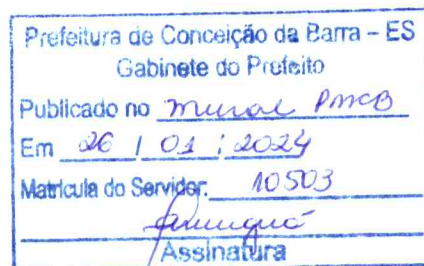 Prefeitura de Conceição da Barra – ES
Gabinete do Prefeito
Publicado no mural PMCB
Em 26 / 01 / 2024
Matrícula do Servidor: 10503
Assinatura